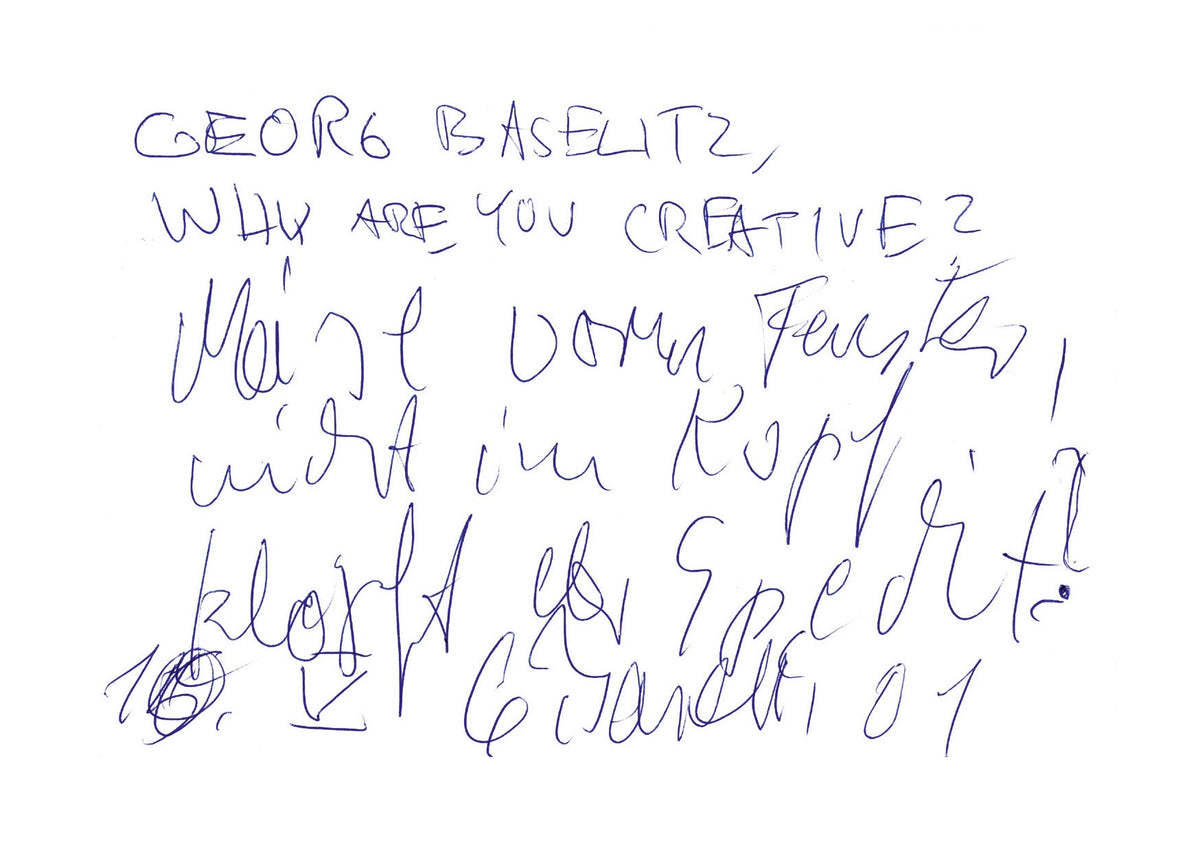 GEORG BASELITZ,
WHY ARE YOU CREATIVE?
Meise vorm Fenster,
nicht im Kopf
klopft der Specht!?
10. V G. Baselitz 01